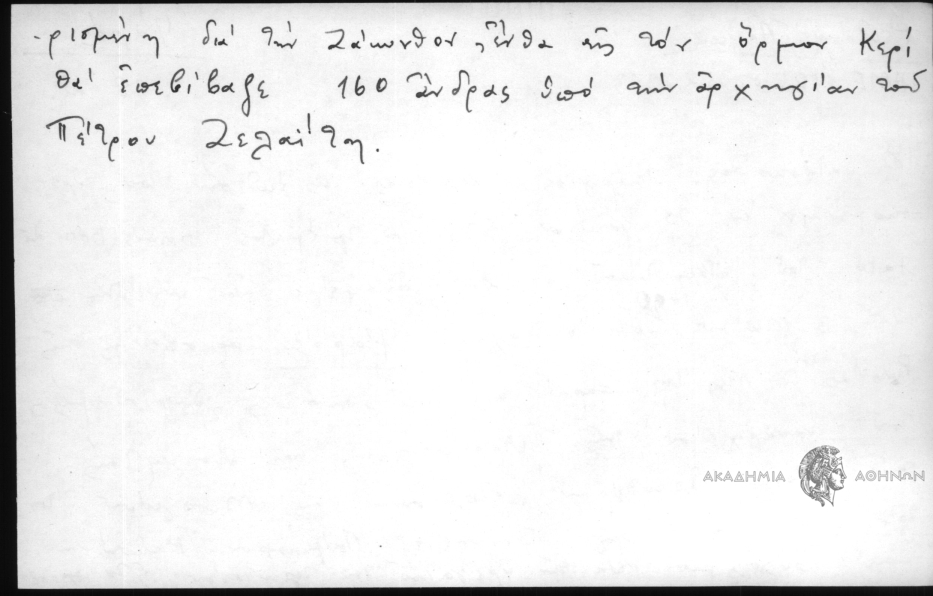 -ρισμένη διά τήν Ζάκυνθον, ἔνθα εἰς τόν ὅρμον Κερί
θά ἐπεβίβαζε 160 ἄνδρας ὑπό τήν ἀρχηγίαν τοῦ
Πέτρου Ζελαΐτη.
ΑΚΑΔΗΜΙΑ ΑΘΗΝΩΝ